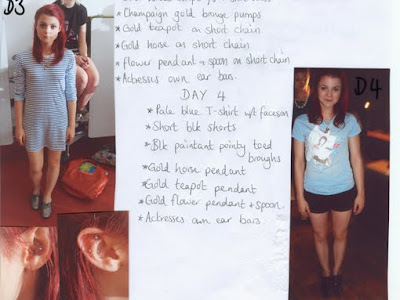 D3
* Champaign gold brouge pumps
* Gold teapot on short chain
* Gold horse on short chain
* flower pendant + spoon on short chain
* Actresses own ear bars.
DAY 4
* Pale blue T-shirt w/t face on
* Short blk shorts
* Blk paintant pointy toed
broughs
* Gold horse pendant
* Gold teapot pendant
* Gold flower pendant + spoon.
* Actresses own ear bars.
D4